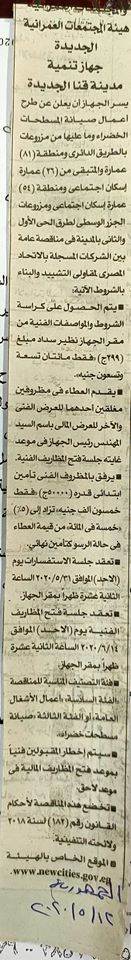 هيئة المجتمعات العمرانية
الجديدة
جهاز تنمية
مدينة قنا الجديدة
يسر الجهاز ان يعلن عن طرح
أعمال صيانة المسطحات
الخضراء وما عليها من مزروعات
بالطريق الدائرى ومنطقة (٨١)
عمارة والمتبقى من (٢٦) عمارة
إسكان اجتماعى ومنطقة (٥٤)
عمارة إسكان اجتماعى ومزروعات
الجزر الوسطى لطرق الحى الأول
والثانى بالمدينة فى مناقصة عامة
بين الشركات المسجلة بالاتحاد
المصرى لمقاولى التشييد والبناء
بالشروط الآتية:
■ يتم الحصول على كراسة
الشروط والمواصفات الفنية من
مقر الجهاز نظير سداد مبلغ
(٢٩٩ج) فقط مائتان تسعة
وتسعون جنيه.
■ يقدم العطاء فى مظروفين
مغلقين احدهما للعرض الفنى
والآخر للعرض المالى باسم السيد
المهندس رئيس الجهاز فى موعد
غايته جلسة فتح المظاريف الفنية.
■ يرفق بالمظروف الفنى تأمين
ابتدائى قدره (٥٠٠٠٠ج) فقط
خمسون الف جنيه، تزاد إلى (٥٪)
خمسة فى المائة من قيمة العطاء
فى حالة الرسو كتأمين نهائى.
■ تعقد جلسة الاستفسارات يوم
(الاحد) الموافق ٢٠٢٠/٥/٣١ الساعة
الثانية عشرة ظهراً بمقر الجهاز.
■ تعقد جلسة فتح المظاريف
الفنية يوم (الاحد) الموافق
٢٠٢٠/٦/١٤ الساعة الثانية عشرة
ظهراً بمقر الجهاز.
■ فئة التصنيف المناسبة للمناقصة
(الفئة السادسة، أعمال الأشغال
العامة، أو الفئة الثالثة، صيانة
مسطحات خضراء).
■ سيتم إخطار المقبولين فنياً
بموعد فتح المظاريف المالية فى
موعد لاحق.
■ تخضع هذه المناقصة لأحكام
القانون رقم (١٨٢) لسنة ٢٠١٨
ولائحته التنفيذية.
■ الموقع الخاص بالهيئة
www.newcities.gov.eg
الجمهورية
٢٠٢٠/٥/١٢